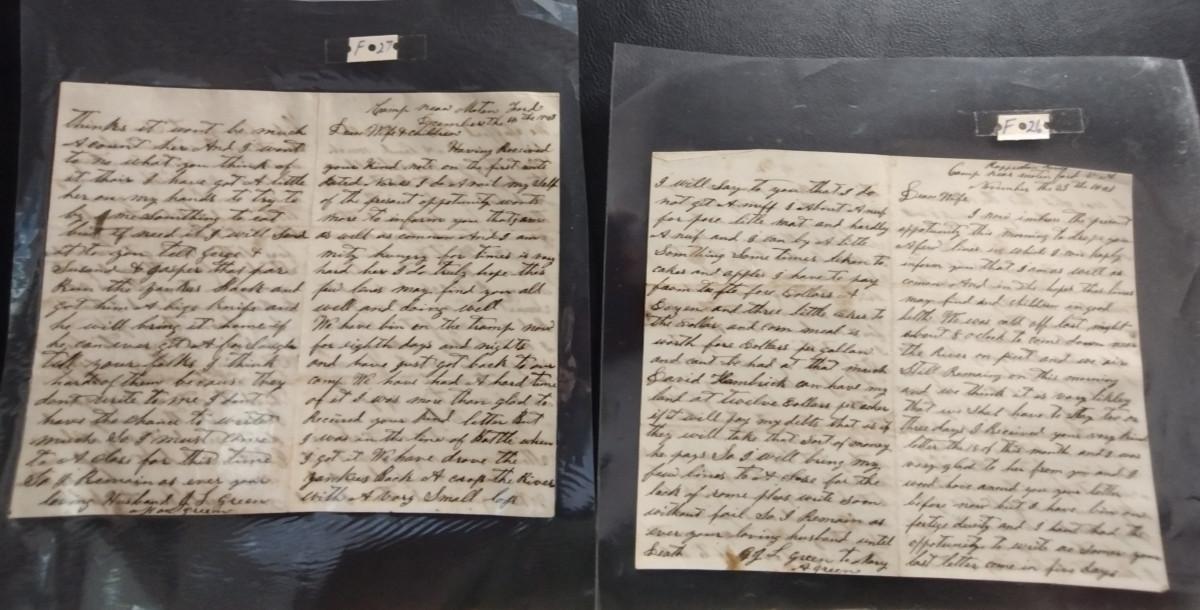 F 27
Camp near Moten Ford
December the 10 th 1863
Dear Wife & children
Having Received
your kind note on the first
dated times I do Avail my Self
of the present oppertunity wonts
more to inform you that I am
as well as common And I am
mity hungry for times is very
hard her I do truly hope this
few lines may find you all
well and doing well
We have bin on the tramp now
for eighth days and nights
and have just got back to our
camp We have had A hard time
of it I was more than glad to
Recived your kind letter but
I was in the line of Battle when
I got it We have drove the
yankees Back A cross the River
with A very Small loss
thinks it wont be much
Acount her And I want
to me what you think of
it their I have got A little
her on my hands to try to
by me something to eat
but if need it I will Send
it to you tell Gorge &
Susand & Jasper that par
Run the yankes Back and
got him A big knife and
he will bring it home if
he can ever get A furlough
tell your folks I think
hard of them because they
dont write to me I dont
have the chance to write
much So I must come
to A close for this time
So I Remain as ever your
loving Husband J. L. Green
Green
F 26
Camp near moten ford
November the 25 th 1863
Dear Wife
I now imbrace the present
oppertunity this morning to drope you
A few lines in which I can hapily
inform you that I am as well as
common And in the hope that lines
may find and children in good
helth We was cald off last night
about 8 o clock to come down near
the River on picet and we are
Still Remaing on this morning
and we think it is very likley
that we Shal have to Stay two or
three days I Received your very kind
letter the 18 of this month and I was
very glad to her from you and I
wood have your letter
before now but I have bin on
fortige duity and I hant had the
oppertunity to write as Sooner your
last letter come in five days
I will Say to you that I do
not git A nuff I About A nuff
for pore little meat and hardly
A nuf and I can by A little
Something Some times Sutch as
cakes and apples I have to pay
from to five Dollars A
Dozen and three little cakes to
the dollar and corn meal is
worth fore Dollars per gallon
and cant be had at that much
David Hambrick can have my
land at twelve Dollars per acker
if it will pay my debts that is if
they will take that Sort of money
he pays So I will bring my
few lines to A close for the
lack of some plase write soon
without fail So I Remain as
ever your loving husband until
Death J. L. Green to Mary
A Green